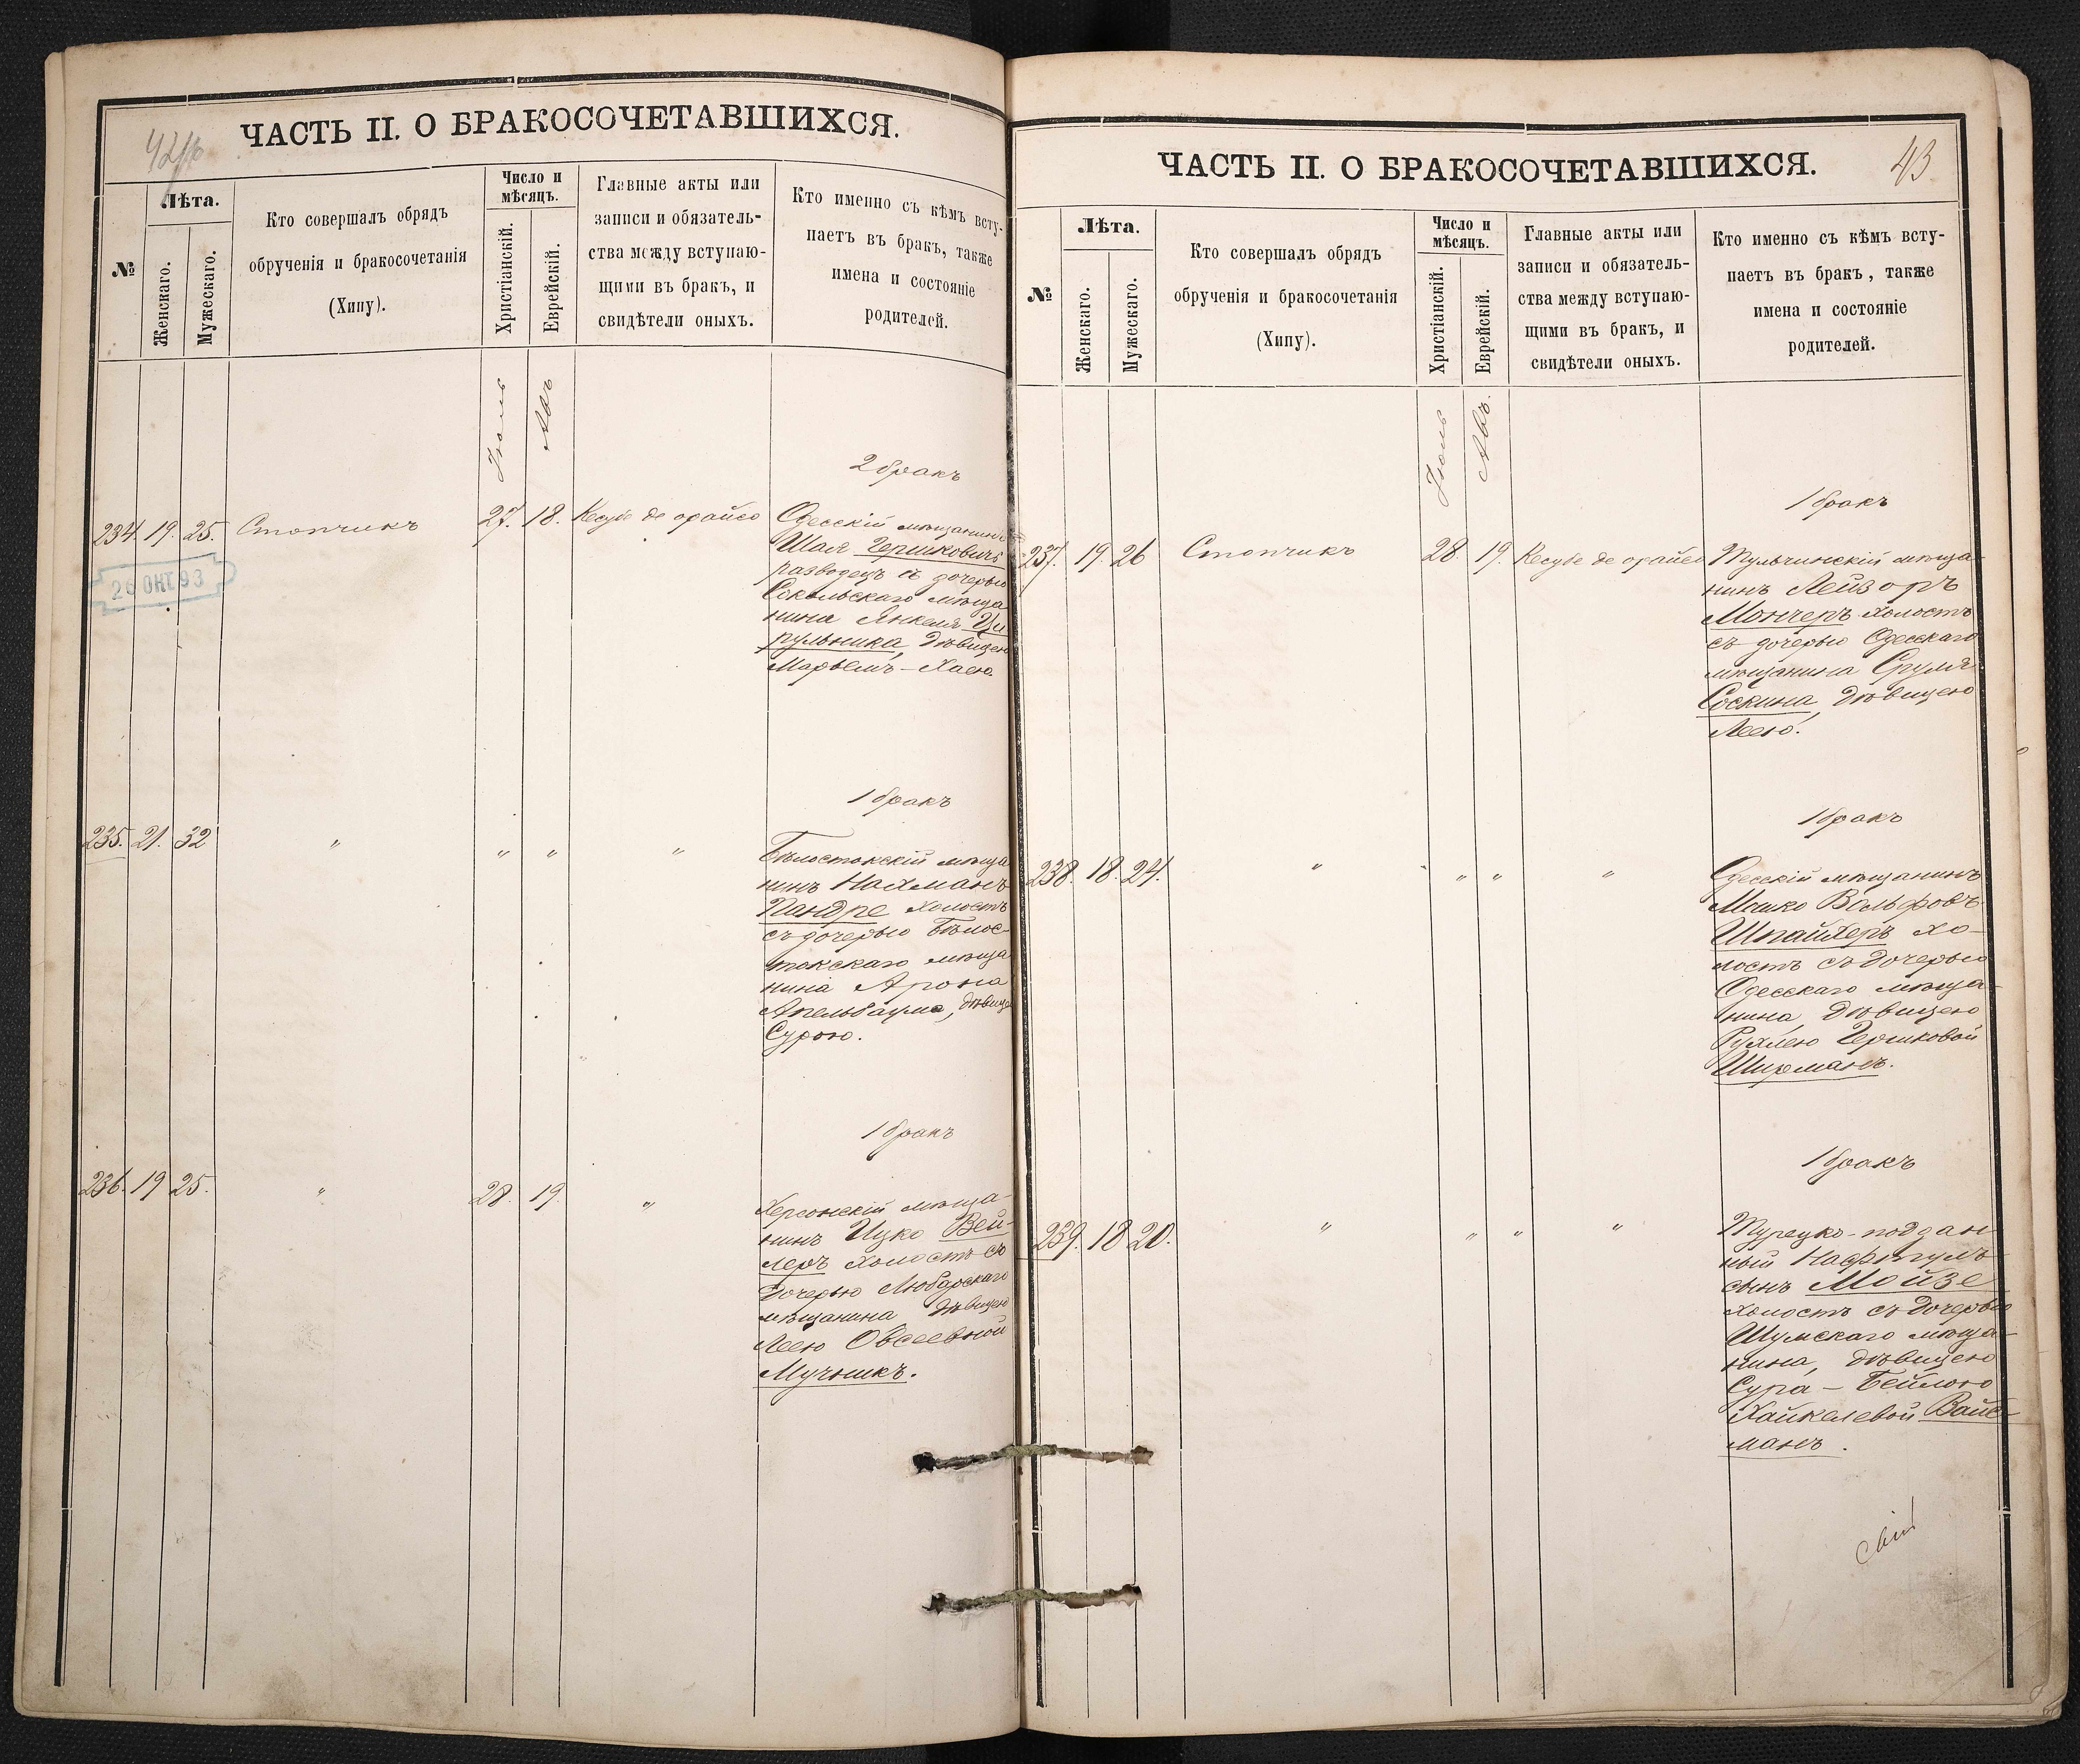 42 об
ЧАСТЬ II. О БРАКОСОЧЕТАВШИХСЯ.
№
Лѣта.
Женскаго.
Мужескаго.
Кто совершалъ обрядъ
обрученія и бракосочетанія
(Хипу).
Число и
мѣсяцъ.
Христіанскій.
Еврейскій.
Главные акты или
записи и обязатель-
ства между вступаю-
щими въ бракъ, и
свидѣтели оныхъ.
Кто именно съ кѣмъ всту-
паетъ въ бракъ, также
имена и состояніе
родителей.
Іюль
Авъ
2 бракъ
234. 19. 25. Стопчикъ 27. 18. Кесубе де орайсо
Одесскій мѣщанинъ
Шая Гершковичъ
разводецъ съ дочерью
Сокольскаго мѣща
нина Янкеля Ци
рульника, дѣвицею
Марьемъ-Хаею.
26 ОКТ. 93
1 бракъ
235. 21. 32 " " " "
Бѣлостокскій мѣща
нинъ Нахманъ
Пандре холостъ
съ дочерью Бѣлос-
токскаго мѣща
нина Арона
Апельбаума, дѣвице
Сурою.
1 бракъ
236. 19 25. " 28. 19. "
Херсонскій мѣща-
нинъ Ицко Вей-
леръ холостъ съ
дочерью Любарскаго
мѣщанина дѣвицею
Леею Овсеевной
Мучникъ.
43
ЧАСТЬ II. О БРАКОСОЧЕТАВШИХСЯ.
№
Лѣта.
Женскаго.
Мужескаго.
Кто совершалъ обрядъ
обрученія и бракосочетанія
(Хипу).
Число и
мѣсяцъ.
Христіанскій.
Еврейскій.
Главные акты или
записи и обязатель-
ства между вступаю-
щими въ бракъ, и
свидѣтели оныхъ.
Кто именно съ кѣмъ всту-
паетъ въ бракъ, также
имена и состояніе
родителей.
Іюль
Авъ.
1 бракъ
237. 19. 26 Стопчикъ 28. 19. Кесубе де орайсо
Тульчинскій мѣща-
нинъ Лейзоръ
Мончеръ холостъ
съ дочерью Одесскаго
мѣщанина Сруля
Соскина, дѣвицею
Леею.
1 бракъ
238. 18. 24. " " " "
Одесскій мѣщанинъ
Мошко Вольфовъ
Шпайхеръ хо-
лостъ съ дочерью
Одесскаго мѣща-
нина, дѣвицею
Рухлею Гершковой
Ширманъ.
1 бракъ
239. 18 20. " " " "
Турецко-поддан
ный Нафтулъ
сынъ Мойзе
холостъ съ дочерью
Шумскаго мѣща-
нина, дѣвицею
Сура-Бейлою
Хайкелевой Вайс-
манъ.